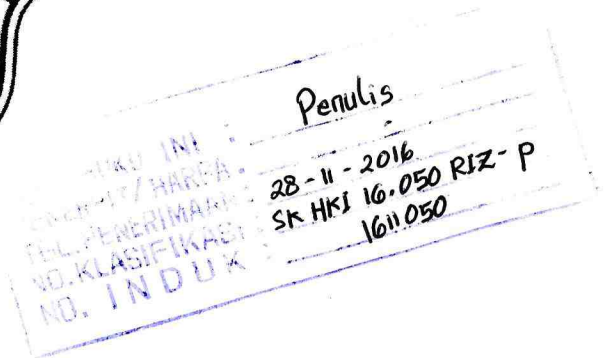 BUKU INI : Penulis
/HARGA :
TGL. PENERIMAAN : 28-11-2016
NO. KLASIFIKASI : SK HKI 16.050 RIZ-P
NO. INDUK : 1611050